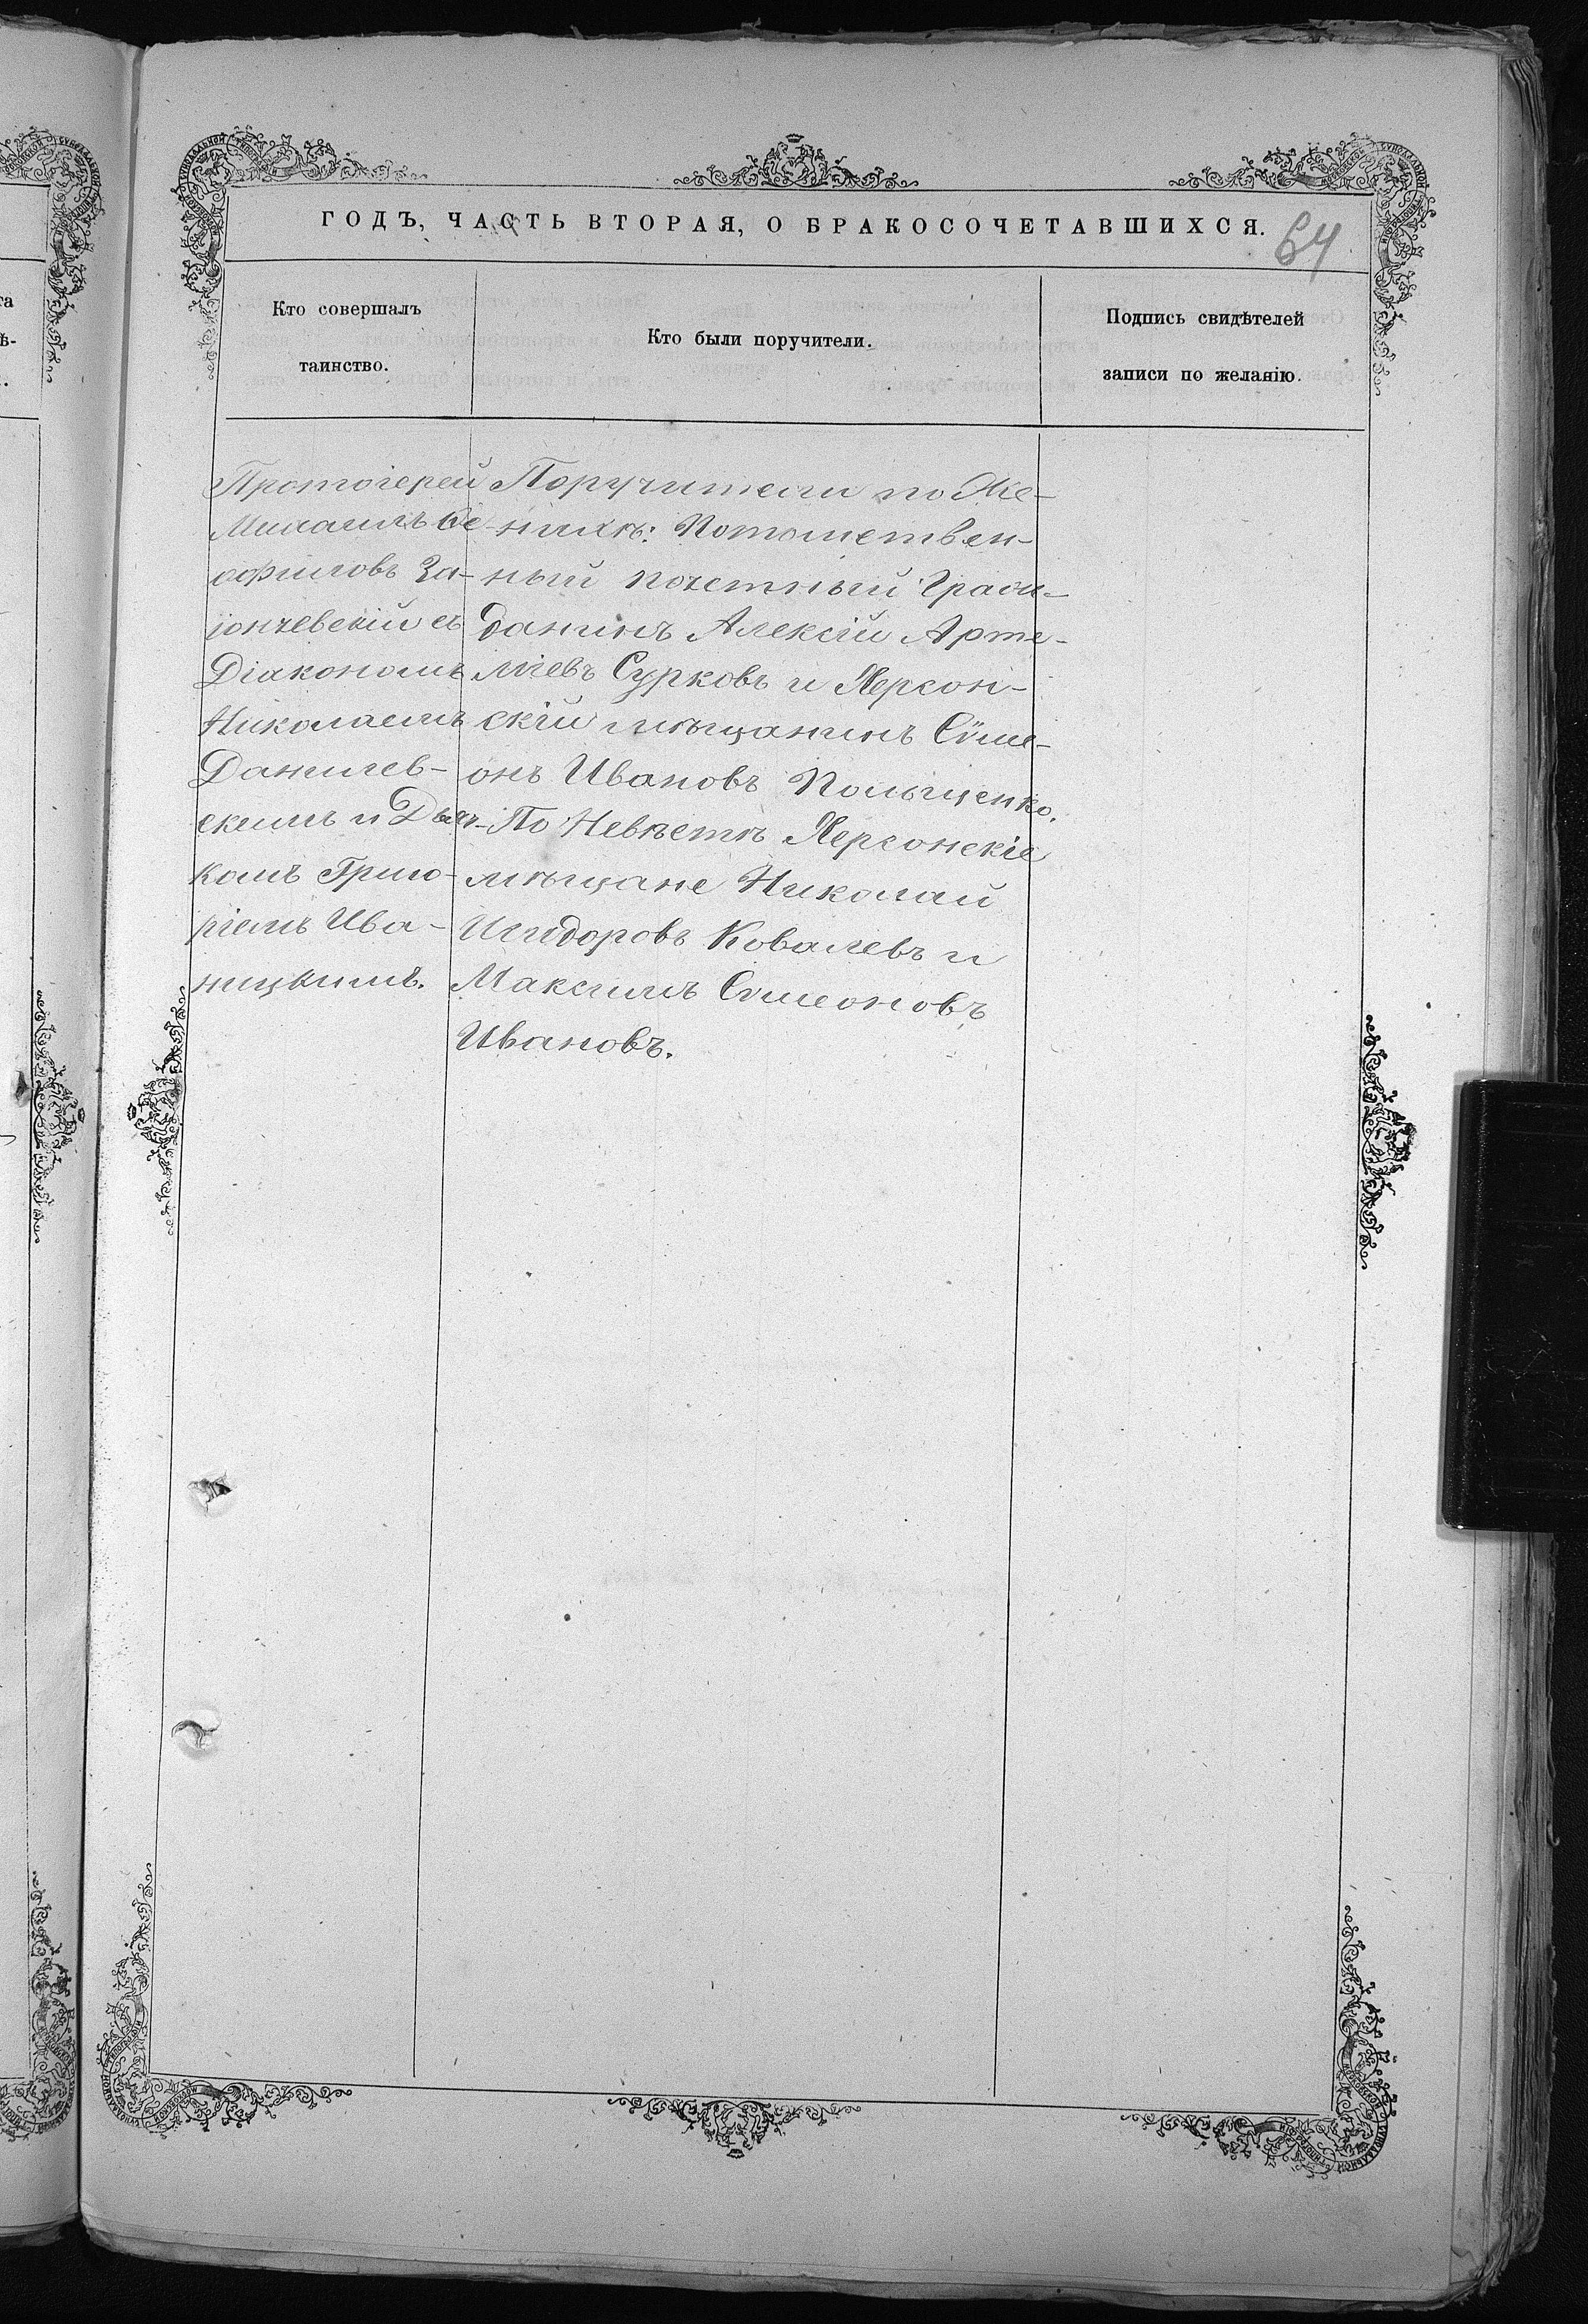 ГОДЪ, ЧАСТЬ ВТОРАЯ, О БРАКОСОЧЕТАВШИХСЯ.
64
Кто совершалъ
таинство.
Кто были поручители.
Подпись свидѣтелей
записи по желанію.
Протоіерей
Михаилъ Ѳе-
офиловъ За-
іончевскій съ
Діакономъ
Николаемъ
Данилев-
скимъ и Дья-
комъ Григо-
ріемъ Ива-
ницкимъ.
Поручители по Же-
нихѣ: Потомствен-
ный почетный Граж-
данинъ Алексій Арте-
міевъ Сурковъ и Херсон-
скій мѣщанинъ Сѵме-
онъ Ивановъ
По Невѣстѣ Херсонскіе
мѣщане Николай
Исидоровъ Ковалевъ и
Максимъ Симеоновъ
Ивановъ.